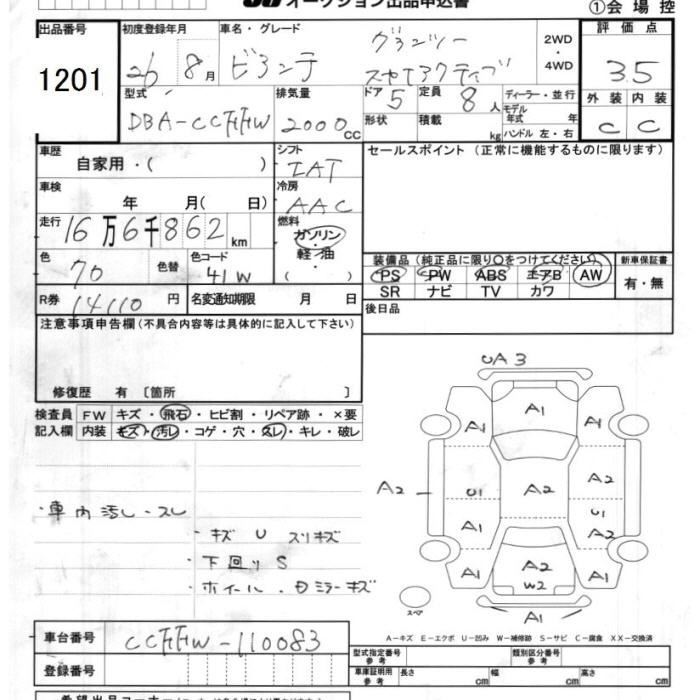 オークション出品申込書
①会場控
出品番号 初度登録年月 車名・グレード 評価点
1201 26 8月 ビアンテ グランツー スカイアクティブ 2WD・4WD 3.5
型式 排気量 ドア 5 定員 8人 ディーラー・並行 外装 内装
DBA-CCFFW 2000cc 形状 積載 kg モデル年式 年 ハンドル 左・右 C C
車歴 自家用・( ) シフト IAT セールスポイント (正常に機能するものに限ります)
車検 年 月( 日) 冷房 AAC
走行 16万6千862km 燃料 ガソリン・軽油・( )
色 70 色替 色コード 41W
装備品(純正品に限り○をつけてください) 新車保証書
PS PW ABS エアB AW 有・無
SR ナビ TV カワ
R券 14110円 名変通知期限 月 日 後日品
注意事項申告欄(不具合内容等は具体的に記入して下さい)
修復歴 有 〔箇所 〕
検査員 FW キズ・飛石・ヒビ割・リペア跡・×要
記入欄 内装 キズ・汚レ・コゲ・穴・スレ・キレ・破レ
・車内汚レ・スレ
・キズ U スリキズ
・下回りS
・ホイール・ミラーキズ
UA3
A1
A1 A1
A2 U1 A2 A2
U1
A1 A2
A1 A2 A1
W2
スペア A1
A-キズ E-エクボ U-凹み W-補修跡 S-サビ C-腐食 XX-交換済
車台番号 CCFFW-110083
登録番号
型式指定番号 参考 類別区分番号 参考
車庫証明用 参考 長さ cm 幅 cm 高さ cm
希望出品コーナー